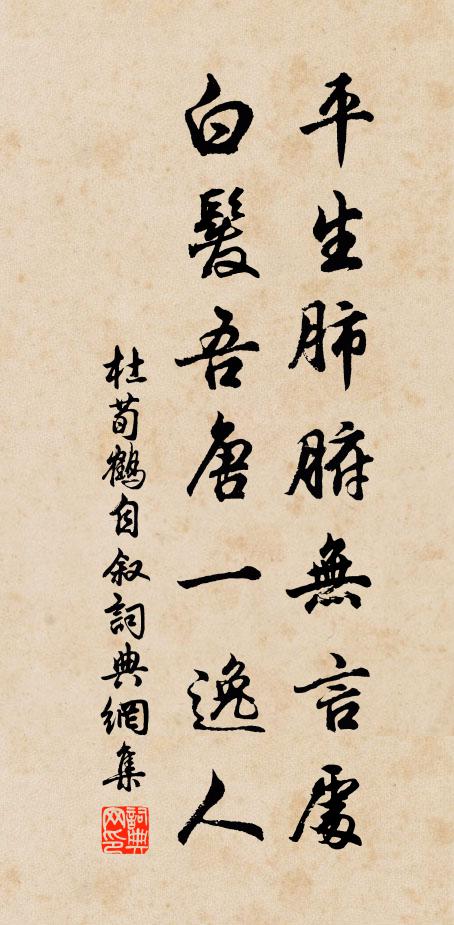 平生肺腑無言處
白髮吾唐一逸人
杜荀鶴自叙詞典網集
詞典網印